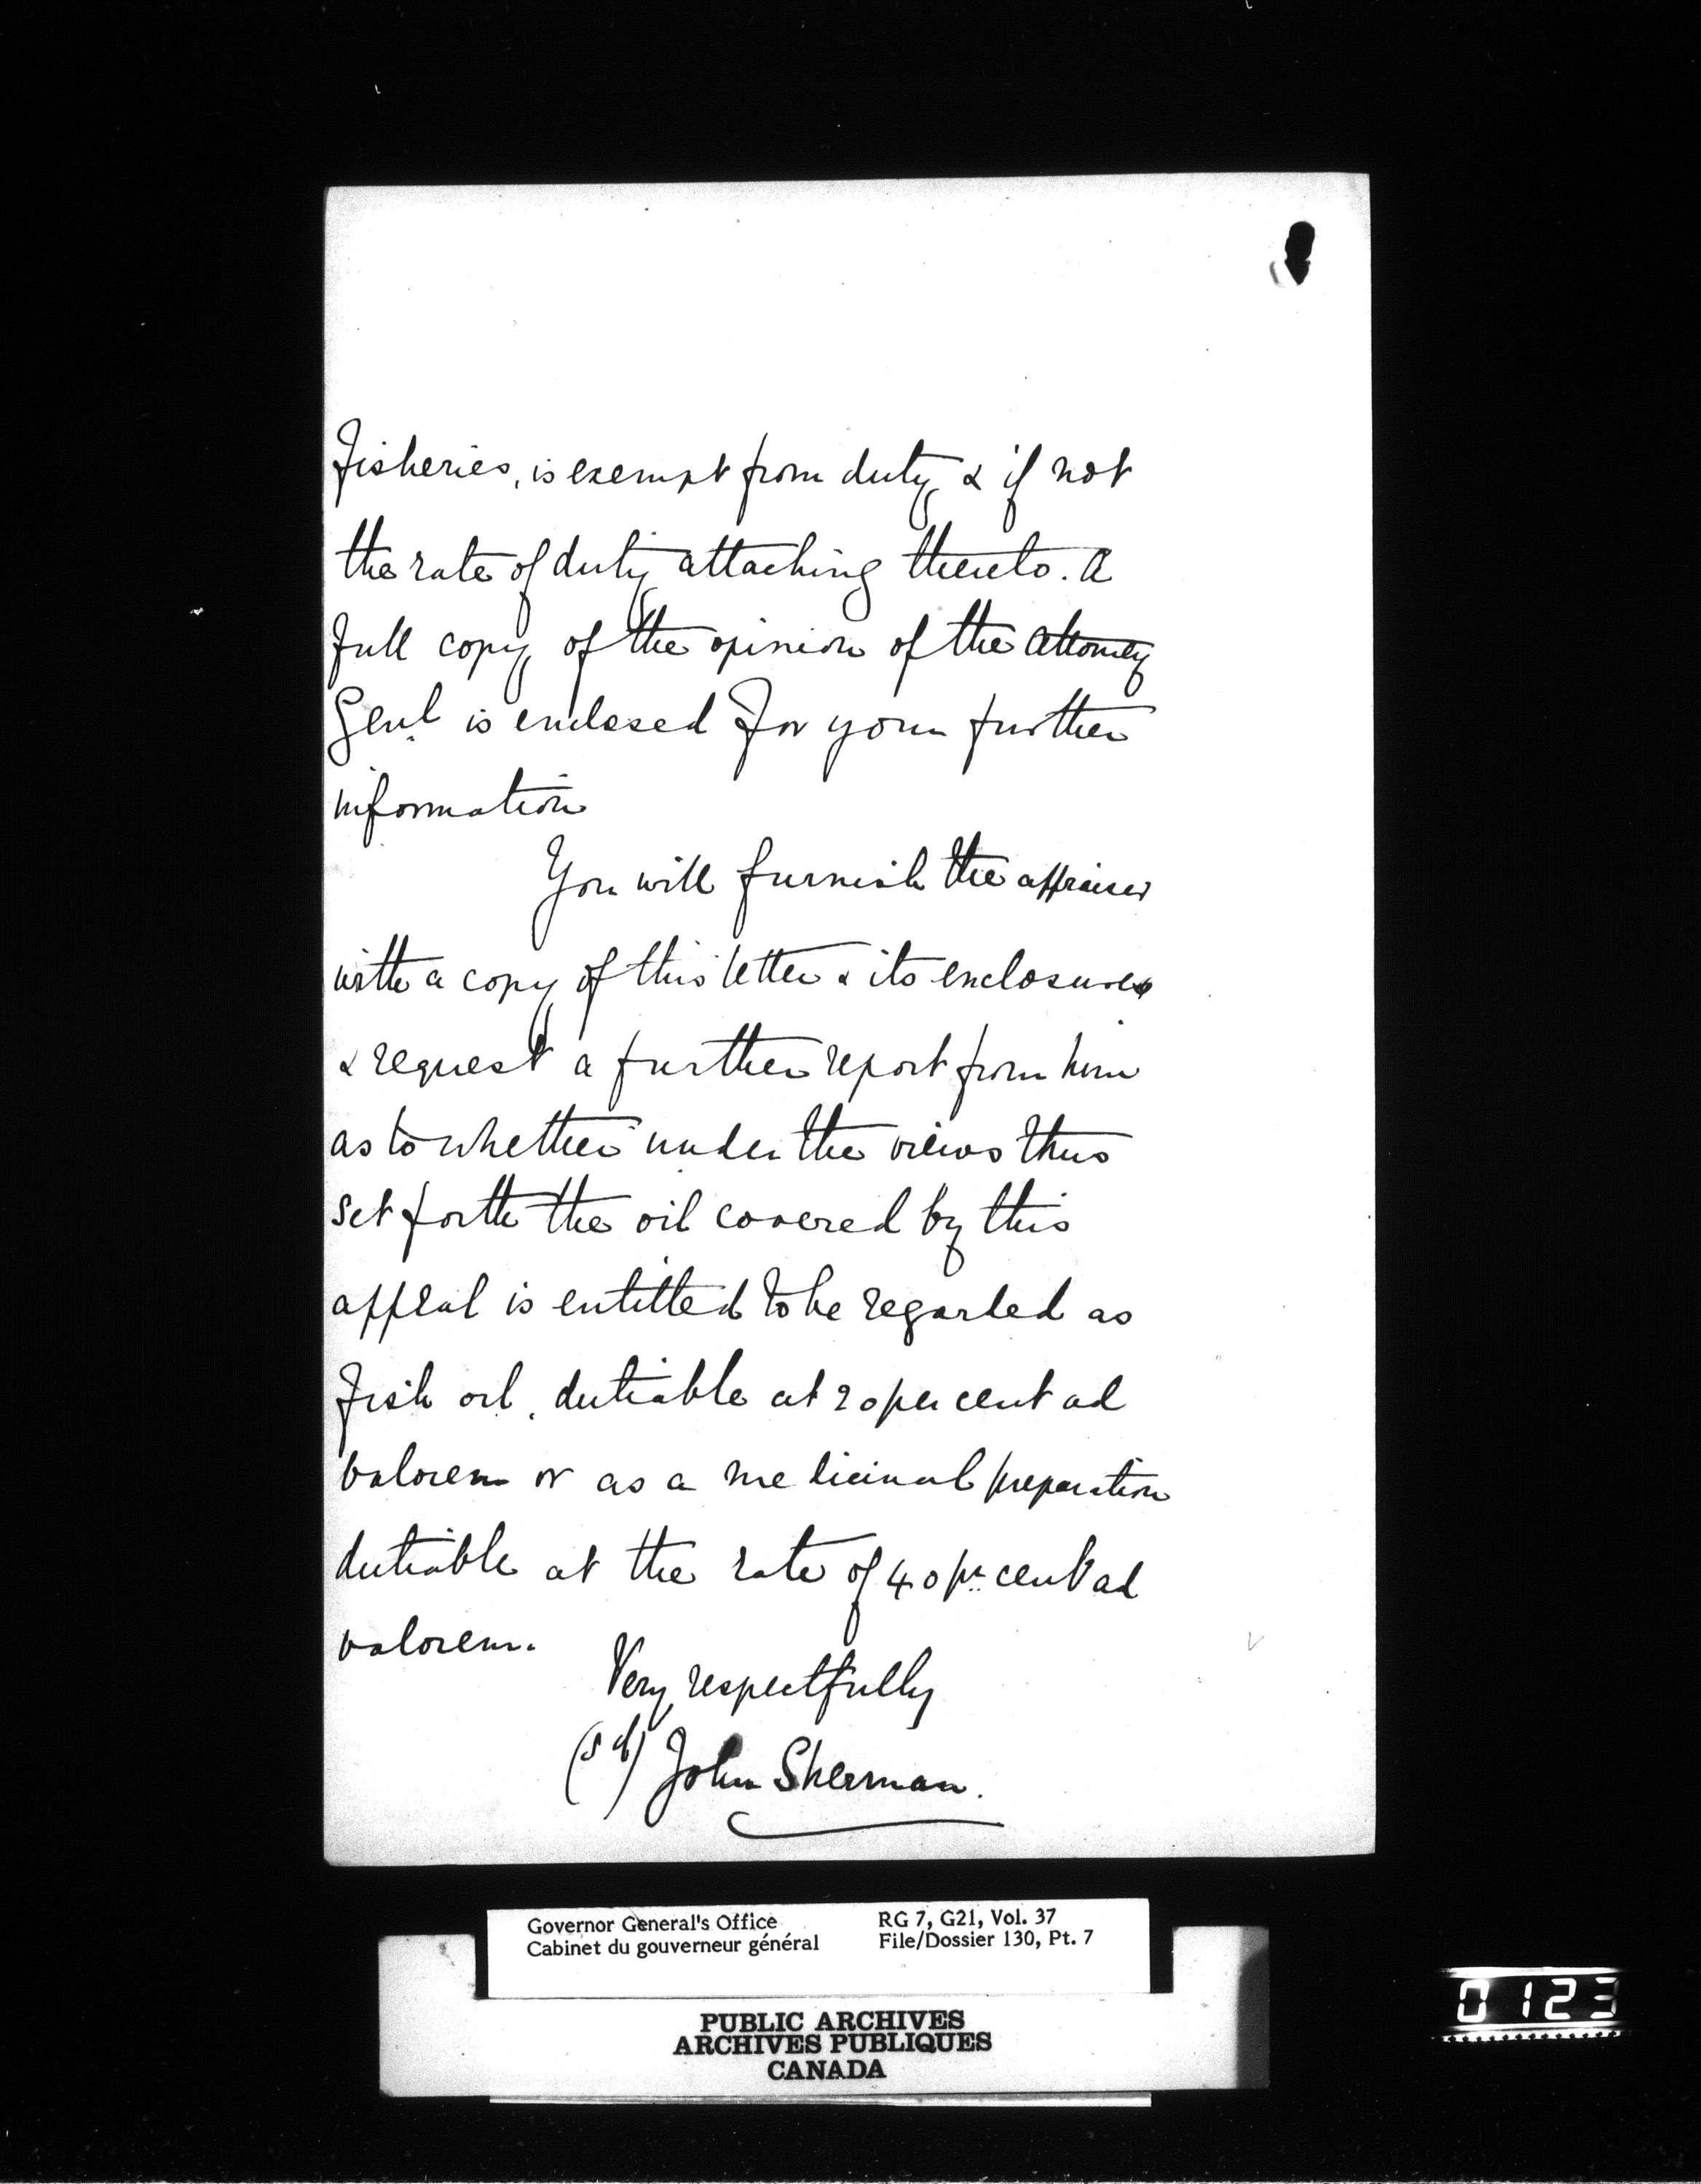 Fisheries, is exempt from duty & if not
the rate of duty attaching thereto. A
full copy of the opinion of the Attorney
Genl is enclosed for your further
information
You will furnish the appraiser
with a copy of this letter & its enclosures
& request a further report from him
as to whether under the views thus
set forth the oil covered by this
appeal is entitled to be regarded as
fish oil, dutiable at 20 per cent ad
valorem or as a medicinal preparation
dutiable at the rate of 40 pr cent ad
valorem.
Very respectfully
(sd) John Sherman.
Governor General's Office
Cabinet du gouverneur général
RG 7, G21, Vol. 37
File/Dossier 130, Pt. 7
PUBLIC ARCHIVES
ARCHIVES PUBLIQUES
CANADA
0123